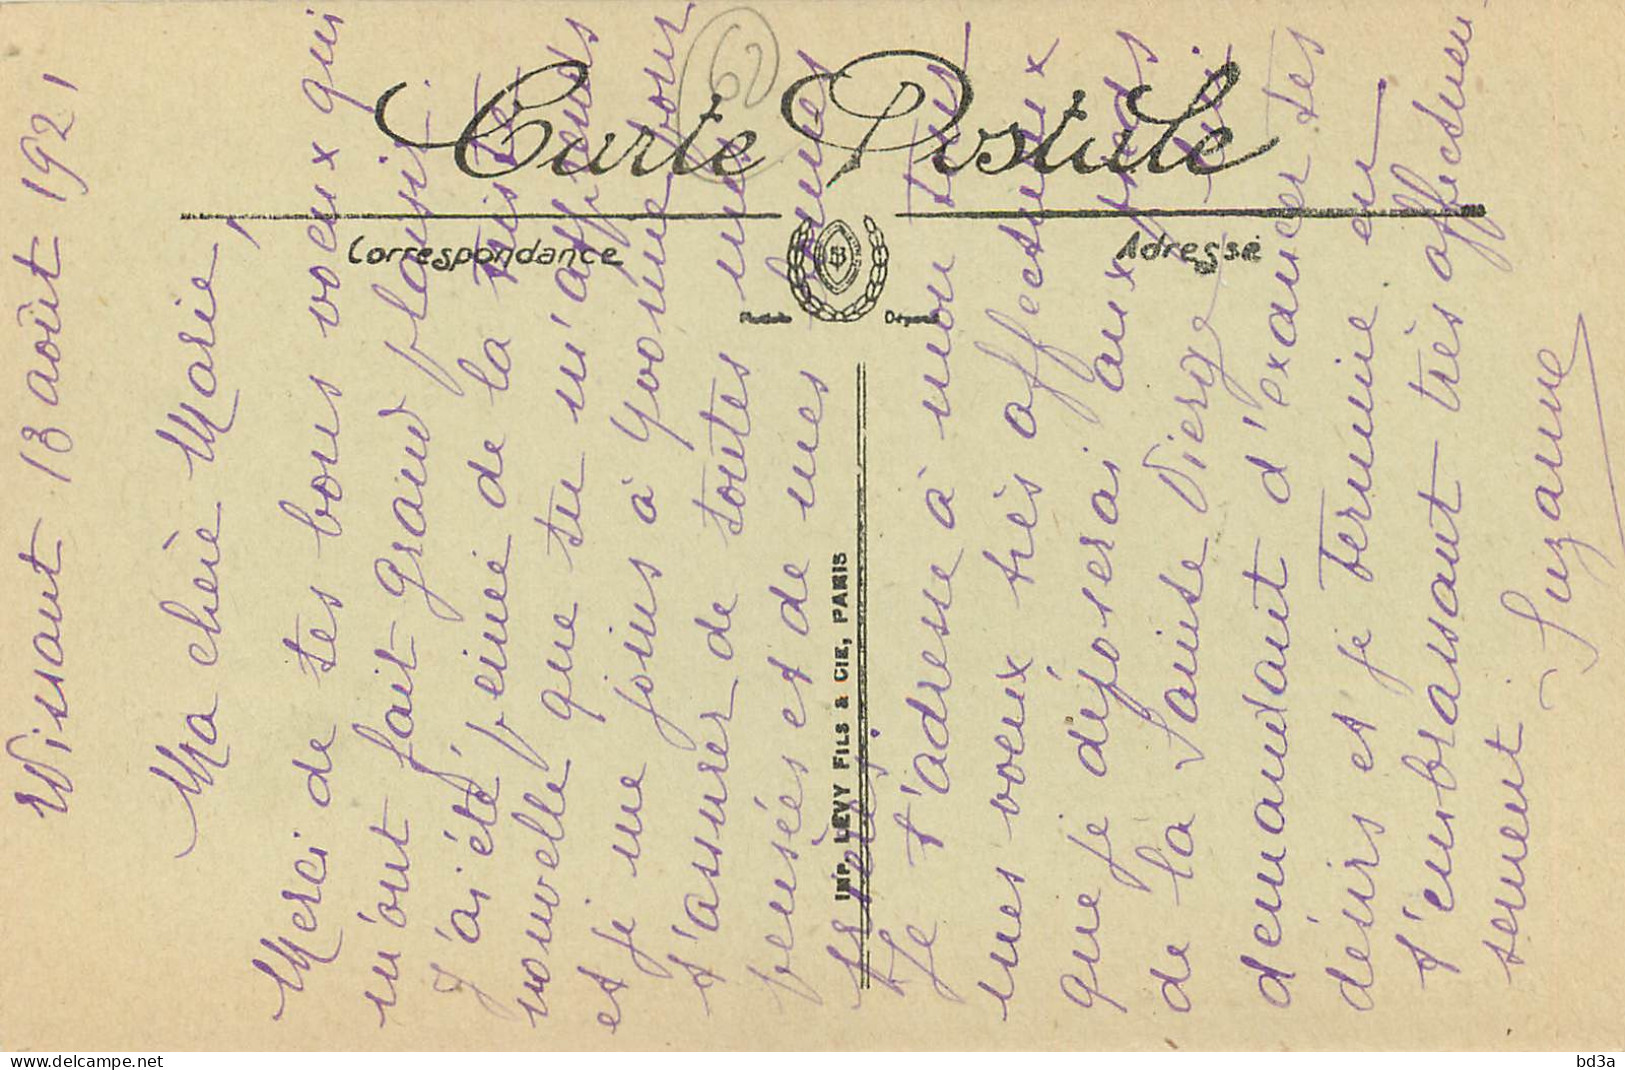 Carte Postale
Correspondance
Adresse
IMP. LÉVY FILS & CIE, PARIS
Wissant 13 août 1921
Ma chère Marie,
Merci de tes bons vœux qui
m'ont fait grand plaisir.
J'ai été peinée de la triste
nouvelle que tu m'apprends
et je me joins à Yvonne pour
t'assurer de toutes mes
pensées et de mes bonnes
prières.
Je t'adresse à mon tour
mes vœux très affectueux
que je déposerai aux pieds
de la Sainte Vierge
demandant d'exaucer tes
désirs et je termine en
t'embrassant très affectueu-
sement.
Suzanne
bd3a